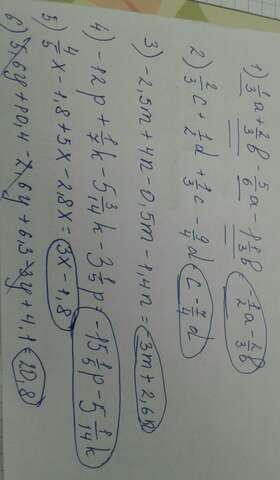 1) 1/3a + 2/3b - 5/6a - 1 1/3b = -1/2a - 2/3b
2) 2/3c + 1/2d + 1/3c - 9/4d = c - 7/4d
3) -2,5m + 4n - 0,5m - 1,4n = -3m + 2,6n
4) -12p + 1/7k - 5 3/14k - 3 1/5p = -15 1/5p - 5 1/14k
5) 4/5x - 1,8 + 5x - 2,8x = 3x - 1,8
6) 5,6y + 10,4 - 7,6y + 6,3 + 2y + 4,1 = 20,8